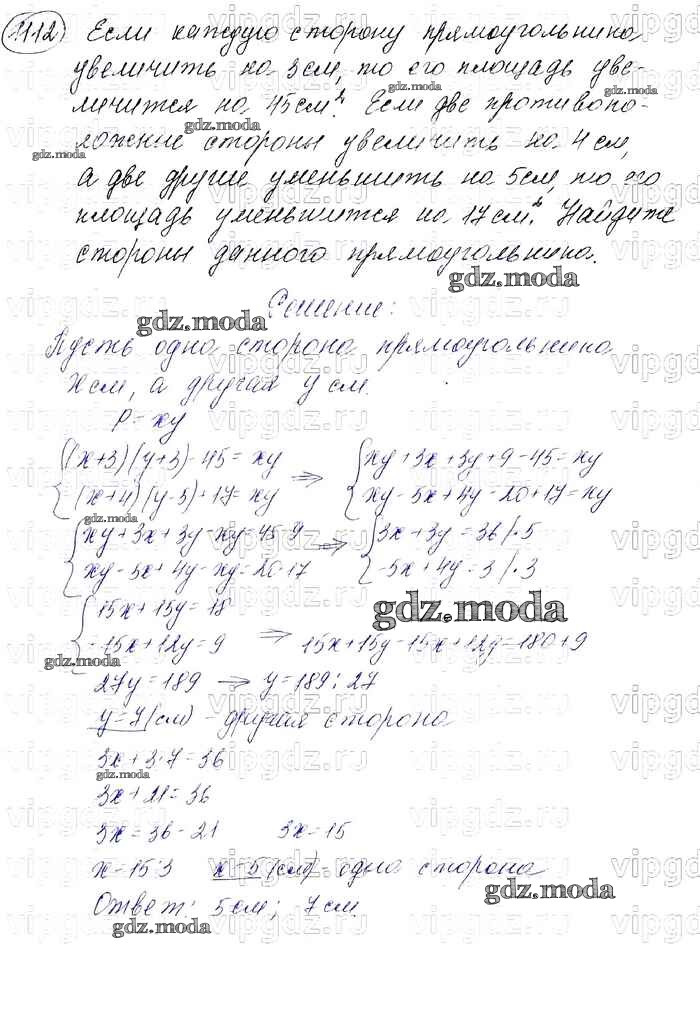 1112) Если каждую сторону прямоугольника
увеличить на 3см, то его площадь уве-
личится на 45см². Если две противопо-
ложные стороны увеличить на 4 см,
а две другие уменьшить на 5см, то его
площадь уменьшится на 17 см². Найдите
стороны данного прямоугольника.
Решение:
Пусть одна сторона прямоугольника
x см, а другая y см.
P = xy
{(x+3)(y+3)-45=xy => {xy+3x+3y+9-45=xy
{(x+4)(y-5)+17=xy {xy-5x+4y-20+17=xy
{xy+3x+3y-xy=45-9 => {3x+3y=36 |·5
{xy-5x+4y-xy=20-17 {-5x+4y=3 |·3
{15x+15y=18
{-15x+12y=9 => 15x+15y-15x+12y=180+9
27y=189 -> y=189:27
y=7(см) - другая сторона
3x+3·7=36
3x+21=36
3x=36-21 3x=15
x=15:3 x=5(см) - одна сторона
Ответ: 5см; 7см.
gdz.moda
vipgdz.ru